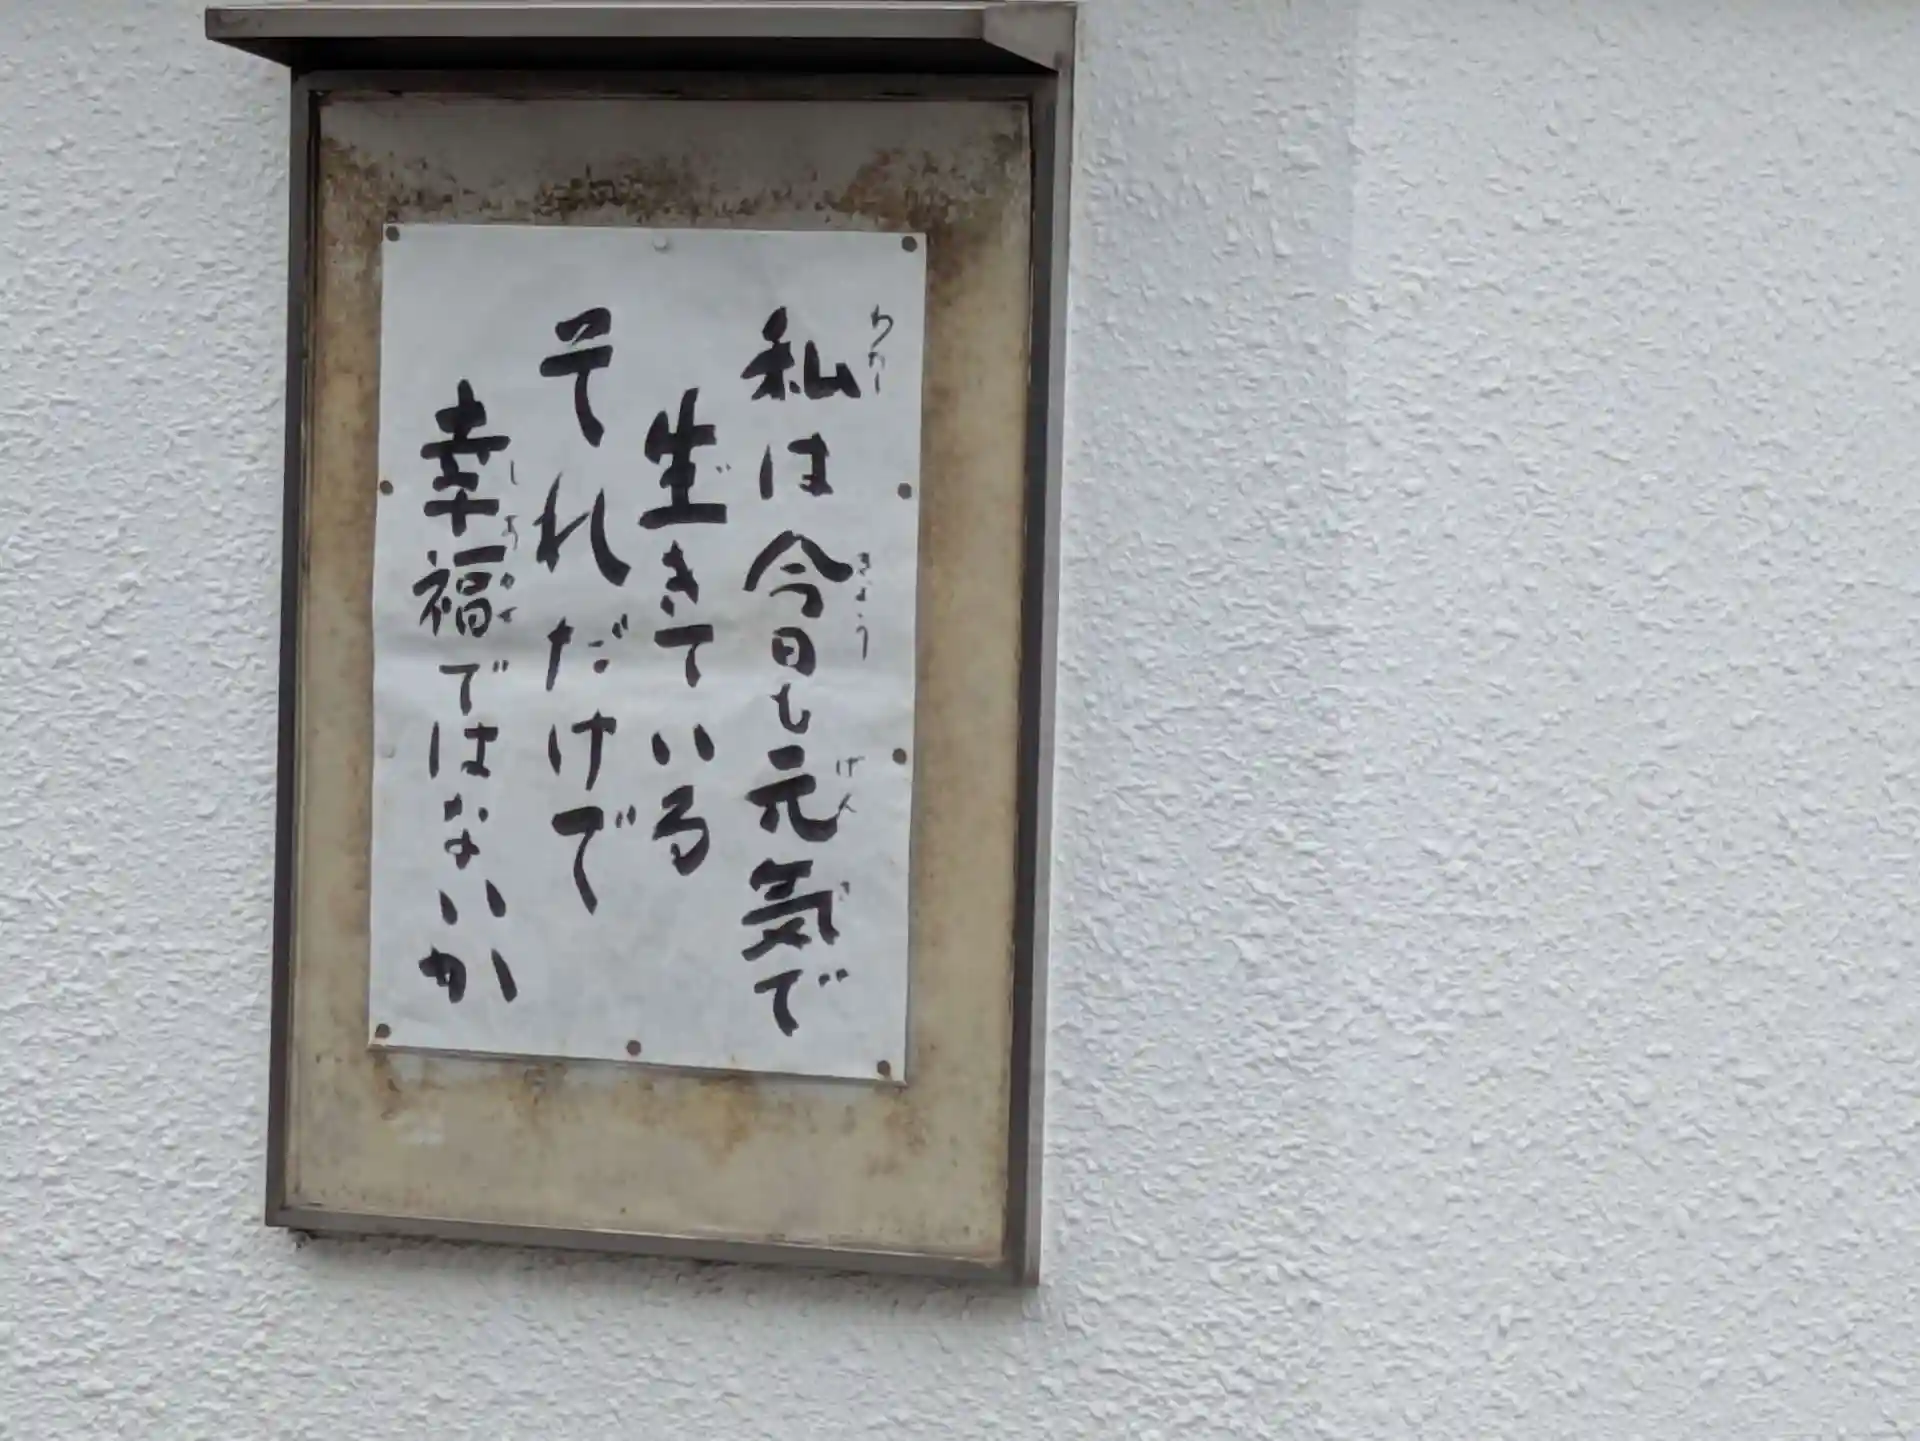 私は今日も元気で
生きている
それだけで
幸福ではないか
わたし
きょう
げんき
しょうふく